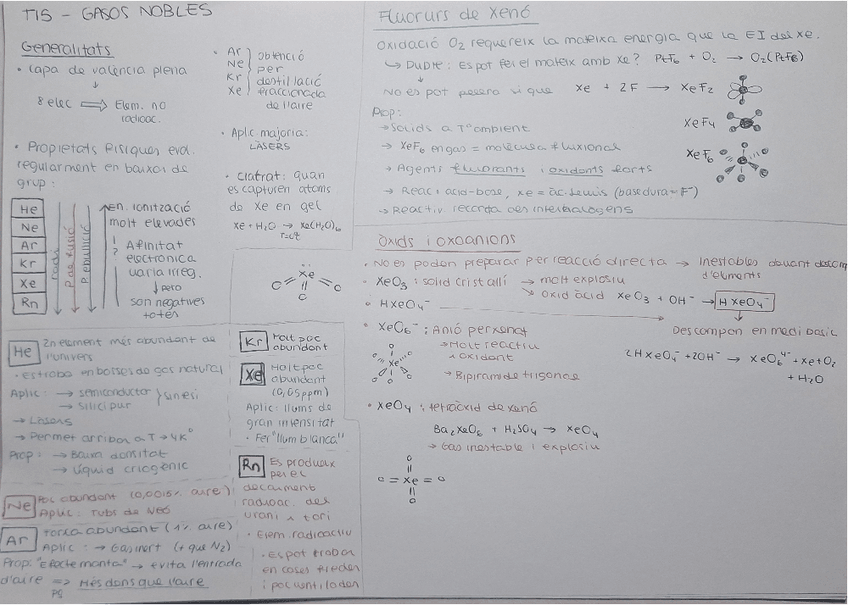 T15 - GASOS NOBLES
Generalitats
• Capa de valència plena
↓
8 elec ⟹ Elem. no
radioac.
• Propietats físiques evol.
regularment en baixos de
grup:
He
Ne
Ar
Kr
Xe
Rn
radi
P de fusió
P ebullició
en. ionització
molt elevades
! Afinitat
? electronica
varia irreg.
↓ pero
son negatives
totes
• Ar
Ne
Kr
Xe
obtenció
per
destil·lació
fraccionada
de l'aire
• Aplic. majoria:
LÀSERS
• Clatrat: quan
es capturen atoms
de Xe en gel
Xe + H2O → Xe(H2O)6
Xe
O O O
He
2n element més abundant de
l'univers
• es troba en bosses de gas natural
Aplic: → semiconductor
→ silici pur
→ Làsers
→ Permet arribar a T → 4K°
Prop: → Baixa densitat
→ Líquid criogènic
Ne
Poc abundant (0,0015% aire)
Aplic: Tubs de Neó
Ar
Força abundant (1% aire)
Aplic: → Gas inert (+ que N2)
Prop: "Efecte manta" → evita l'entrada
d'aire ⟹ Més dens que l'aire
Kr
Molt poc
abundant
Xe
Molt poc
abundant
(0,05 ppm)
Aplic: llums de
gran intensitat
• Fer "llum blanca"
Rn
Es produeix
per el
decaiment
radioac. del
urani i tori
• Elem. radioactiu
• Es pot trobar
en coses
i poc ventilades
Fluorurs de xenó
Oxidació O2 requereix la mateixa energia que la EI del Xe.
↳ Dubte: Es pot fer el mateix amb Xe? PtF6 + O2 → O2(PtF6)
No es pot pero si que Xe + 2F → XeF2
XeF4
XeF6
Prop:
→ Solids a T° ambient
→ XeF6 en gas = molècula fluxional
→ Agents fluorants i oxidants forts
→ Reac. acid-base, Xe = àc. Lewis (base dura = F-)
→ Reactiv. recorda als interhalògens
Òxids i oxoanions
• No es poden preparar per reacció directa → Inestables davant descomp
d'elements
• XeO3: solid cristal·lí → molt explosiu
→ Oxid àcid XeO3 + OH- → HXeO4-
• HXeO4-
Descompon en medi basic
2HXeO4- + 2OH- → XeO6^4- + Xe + O2
+ H2O
• XeO6-: Anió perxenat
→ Molt reactiu
i oxidant
→ Bipiramide trigonal
Xe
• XeO4: tetraòxid de xenó
Ba2XeO6 + H2SO4 → XeO4
→ Gas inestable i explosiu
O
O = Xe = O
O